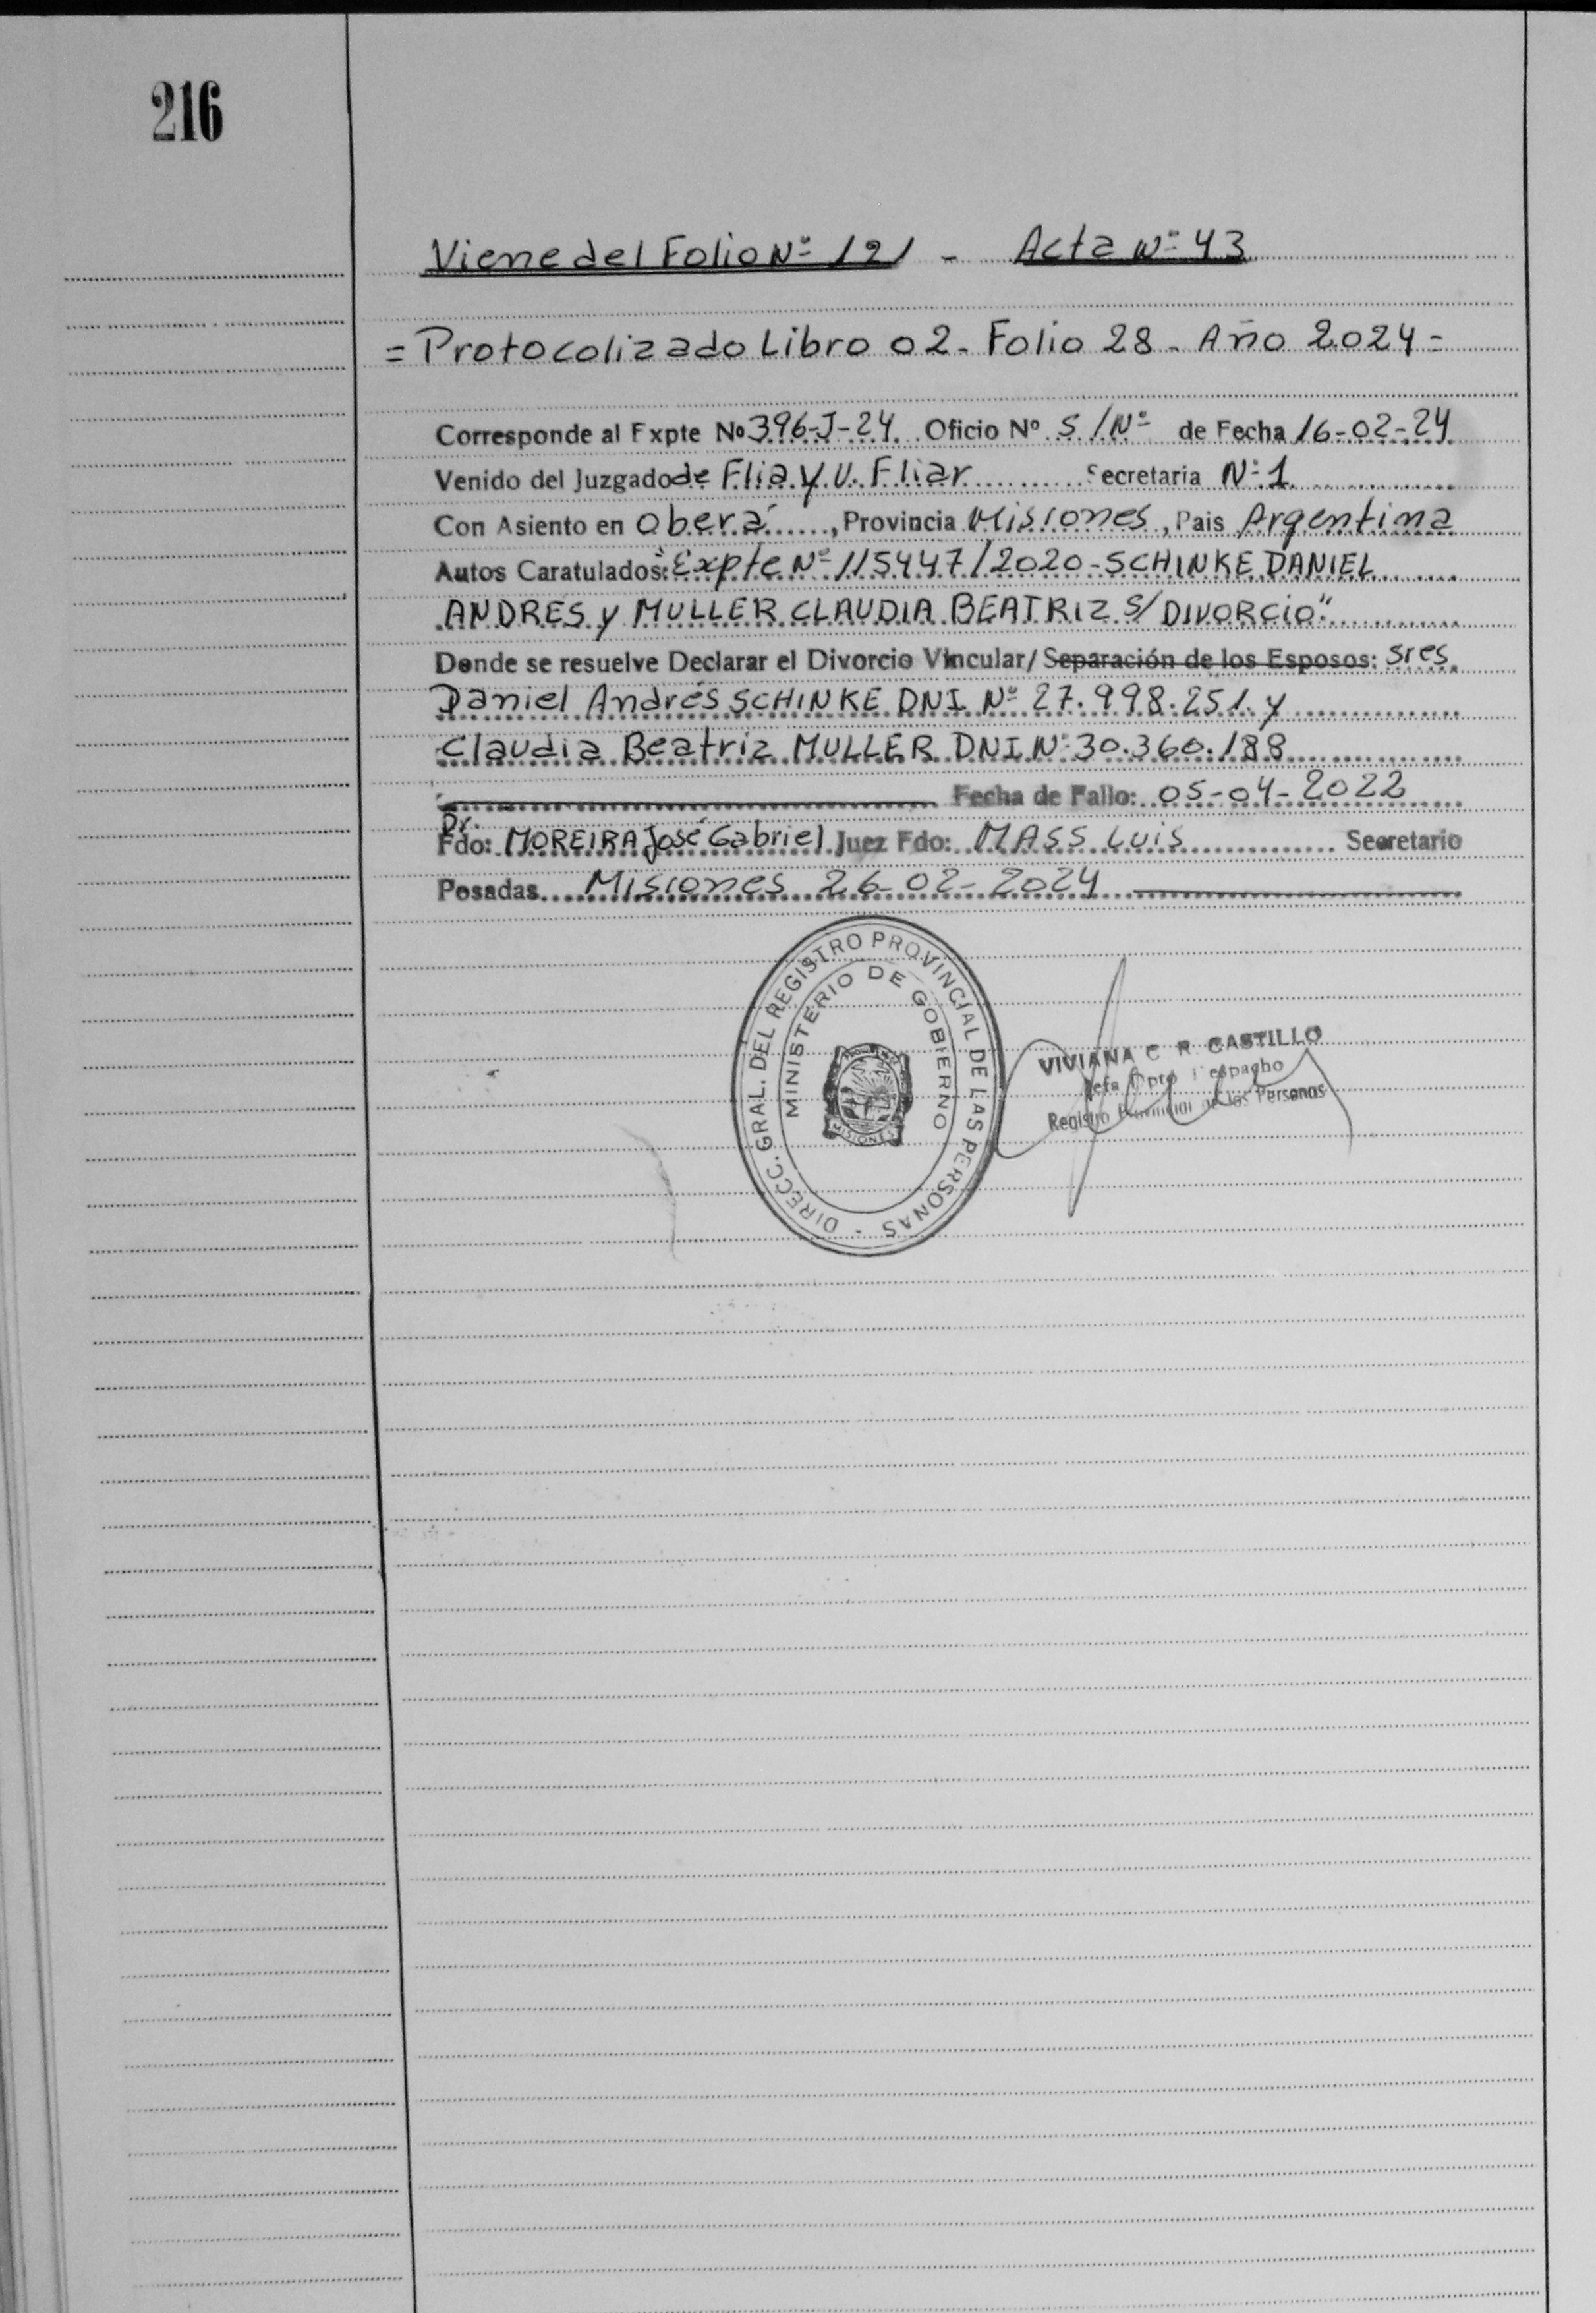 216
Viene del Folio Nº 121 - Acta Nº 43
= Protocolizado Libro 02 - Folio 28 - Año 2024 =
Corresponde al Expte Nº 396-J-24 Oficio Nº S/Nº de Fecha 16-02-24
Venido del Juzgado de Flia y V. Fliar Secretaria Nº 1
Con Asiento en Oberá, Provincia Misiones, Pais Argentina
Autos Caratulados: "Expte Nº 115447/2020 - SCHINKE DANIEL
ANDRES y MULLER CLAUDIA BEATRIZ S/ DIVORCIO"
Donde se resuelve Declarar el Divorcio Vincular/ Separación de los Esposos: Sres
Daniel Andrés SCHINKE DNI Nº 27.998.251 y
Claudia Beatriz MULLER DNI Nº 30.360.188
Fecha de Fallo: 05-04-2022
Dr.
Fdo: MOREIRA José Gabriel Juez Fdo: MASS LUIS Secretario
Posadas Misiones 26-02-2024
DIRECC. GRAL. DEL REGISTRO PROVINCIAL DE LAS PERSONAS
MINISTERIO DE GOBIERNO
MISIONES
VIVIANA C R CASTILLO
Jefa Dpto Despacho
Registro Provincial de las Personas